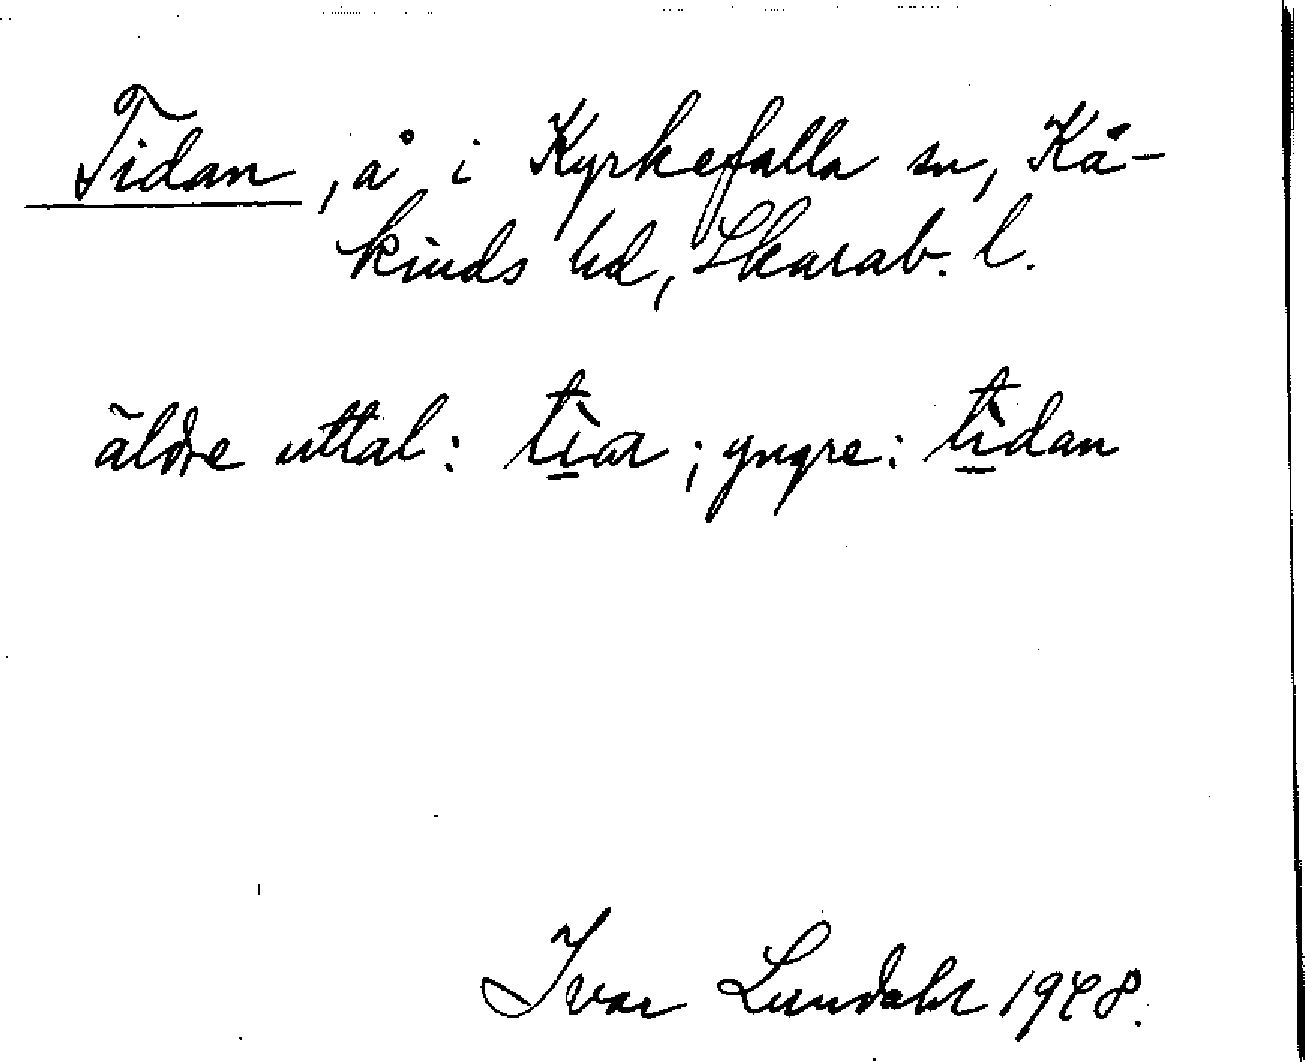 Tidan, å i Kyrkefalla sn, Kå-
kinds hd, Skarab. l.
äldre uttal: tì̲ar; yngre: tì̲dan
Ivar Lundahl 1948.